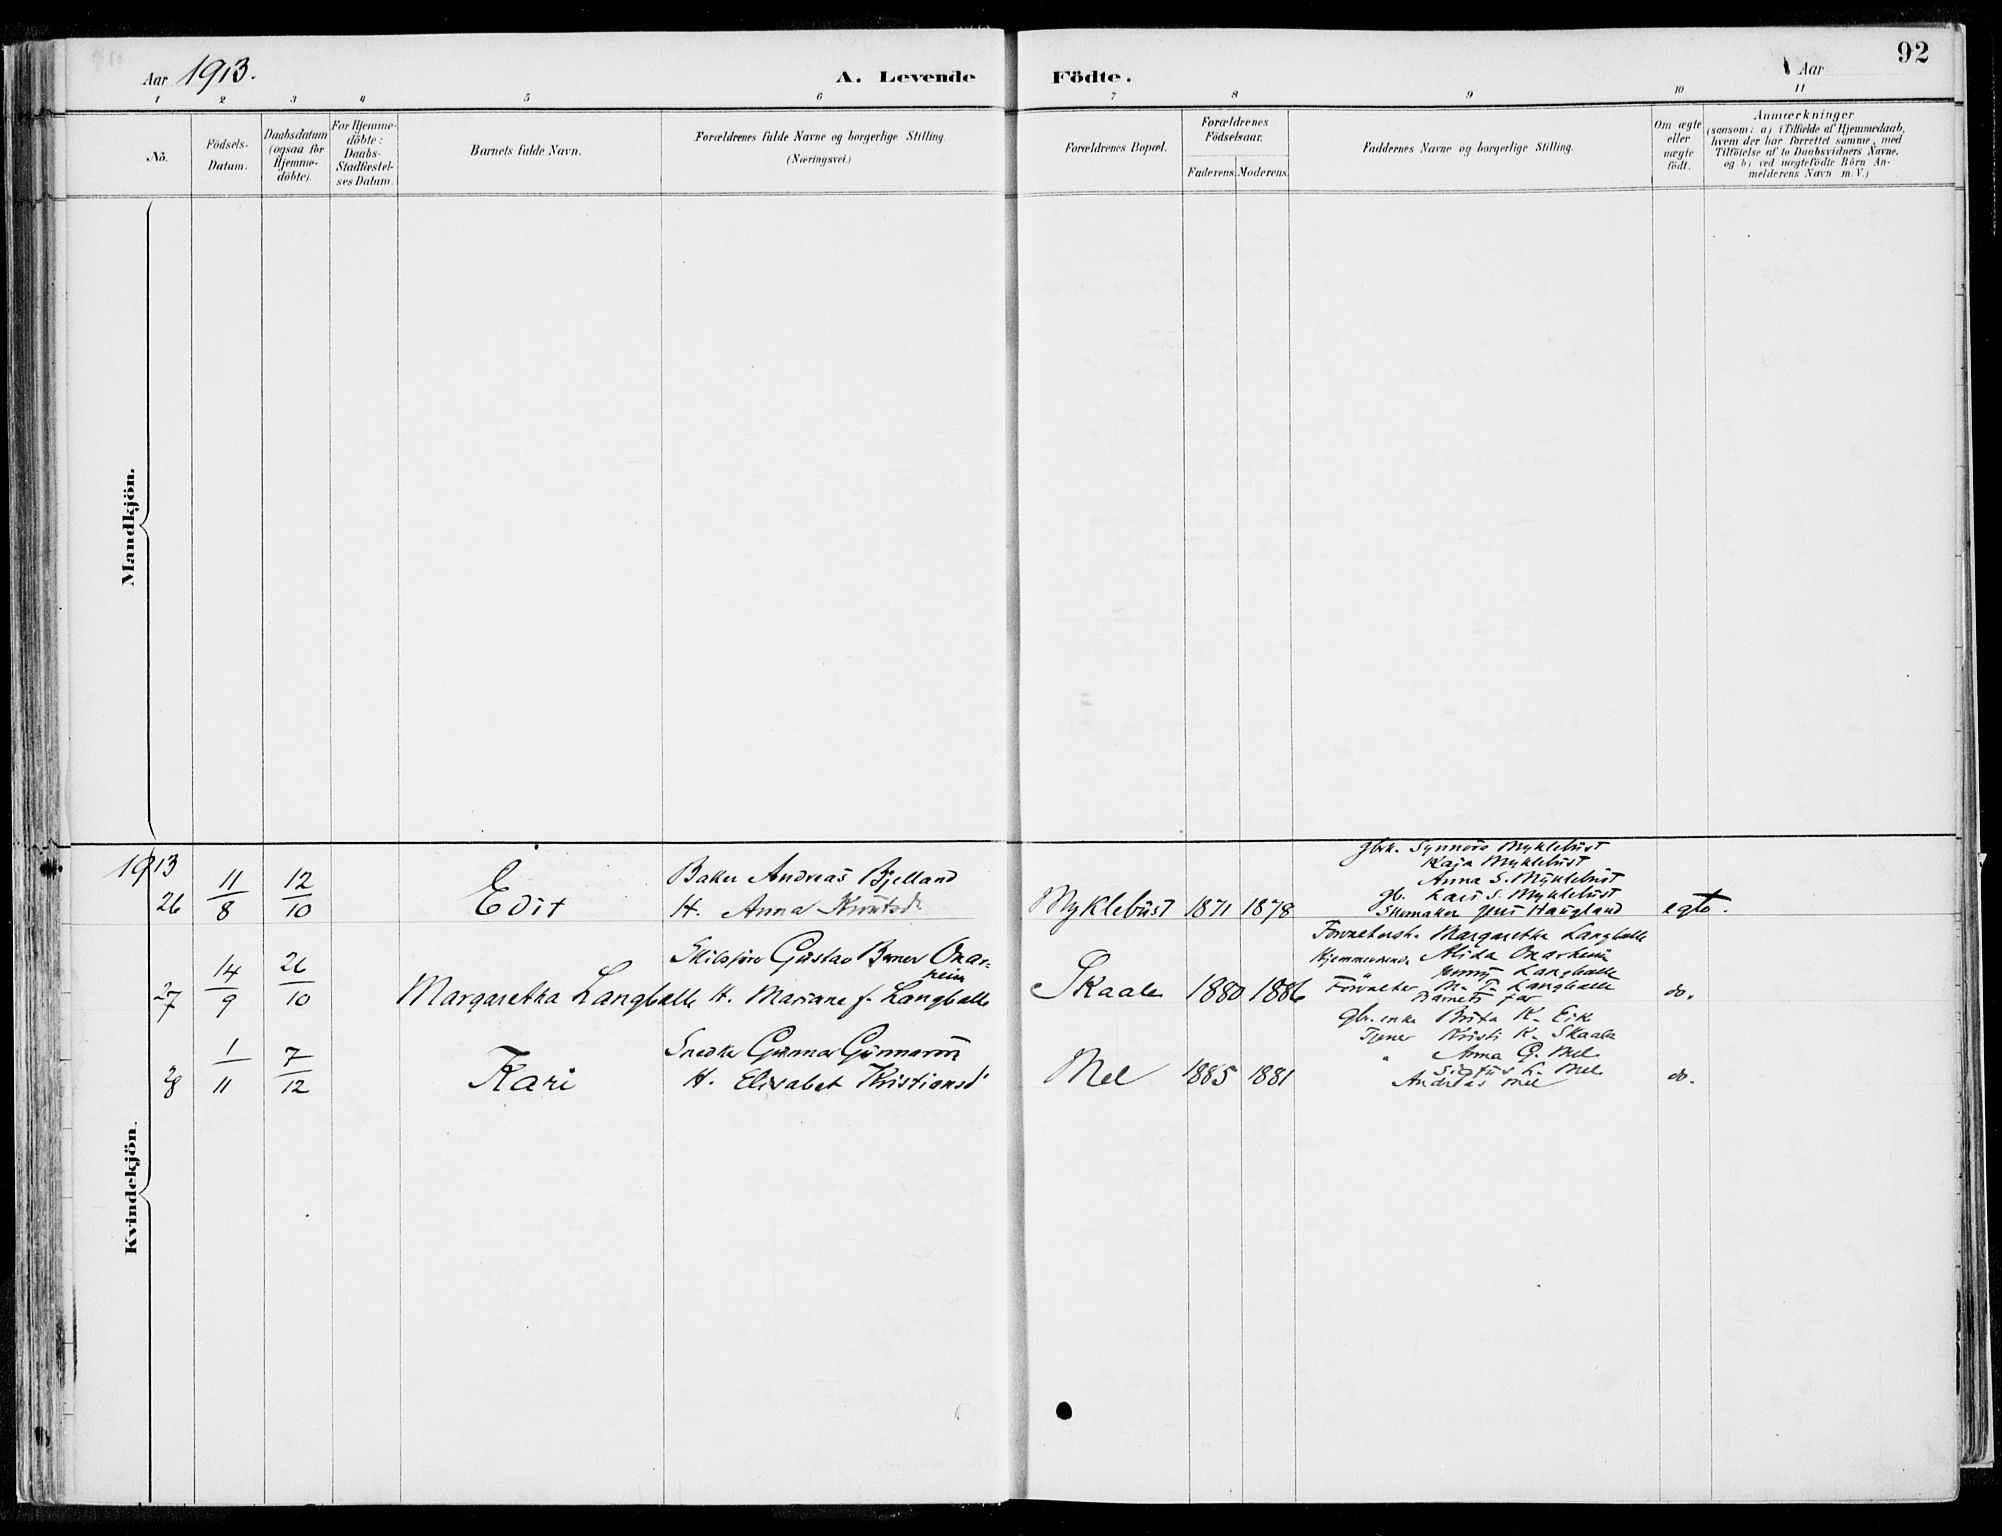 Aar 1913.
A. Levende Födte.
Aar
92
1 2 3 4 5 6 7 8 9 10 11
No.
Födsels-
Datum.
Daabsdatum
(ogsaa for
Hjemme-
döbte).
For Hjemme-
döbte:
Daabs-
Stadfæstel-
ses Datum.
Barnets fulde Navn.
Forældrenes fulde Navne og borgerlige Stilling.
(Næringsvei.)
Forældrenes Bopæl.
Forældrenes
Födselsaar.
Faderens. Moderens.
Faddernes Navne og borgerlige Stilling.
Om ægte
eller
uægte
födt.
Anmærkninger
(saasom: a) i Tilfælde af Hjemmedaab,
hvem der har forrettet samme, med
Tilföielse af to Daabsvidners Navne.
og b) ved uægtefödte Börn An-
melderens Navn m. V.)
Mandkjön.
Kvindekjön.
1913
26
11/8
12/10
Edit
Baker Andreas Bjelland
H. Anna Knutsd.
Myklebust 1871 1878
gbrk. Synnøva Myklebust
Kaja Myklebust
Anna S. Myklebust
gb. Lars S. Myklebust
Skomaker Jens Haugland
egte.
27
14/9
26/10
Margaretha Langballe
Gustav Berner Onar-
heim
H. Mariane f. Langballe
Skaale 1880 1886
Margaretha Langballe
Alida Onarheim
Jenny Langballe
Forvalter M. T. Langballe
Barnets far
do.
28
1/11
7/12
Kari
Snedker Gunnar Gunnarson
H. Elisabet Kristiansd
Mel 1885 1881
gbr. enke Brita K. Eik
Tjener Kristi K. Skaala
" Anna G. Mel
L. Mel
Andreas Mel
do.